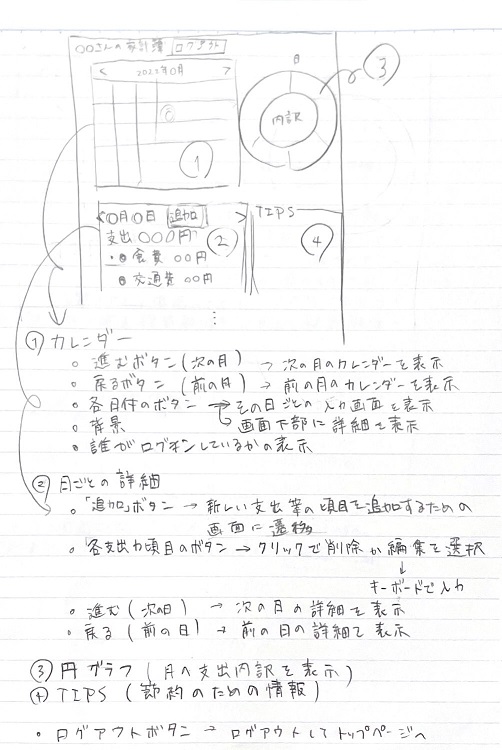 ○○さんの家計簿 ログアウト
< 2022年0月 >
①
月
内訳
③
<0月0日 追加 >
支出○○○円
・食費 ○○円
・交通費 ○○円
②
TIPS
④
⋮
① カレンダー
○ 進むボタン(次の月) → 次の月のカレンダーを表示
○ 戻るボタン (前の月) → 前の月のカレンダーを表示
○ 各日付のボタン → その日ごとの入力画面を表示
○ 背景 ↳ 画面下部に詳細を表示
○ 誰がログオンしているかの表示
② 日ごとの詳細
○ 「追加」ボタン → 新しい支出等の項目を追加するための
画面に遷移
○ 各支出力項目のボタン → クリックで削除か編集を選択
↓
キーボードで入力
○ 進む(次の日) → 次の日の詳細を表示
○ 戻る(前の日) → 前の日の詳細を表示
③ 円グラフ(月の支出内訳を表示)
④ TIPS (節約のための情報)
• ログアウトボタン → ログアウトしてトップページへ